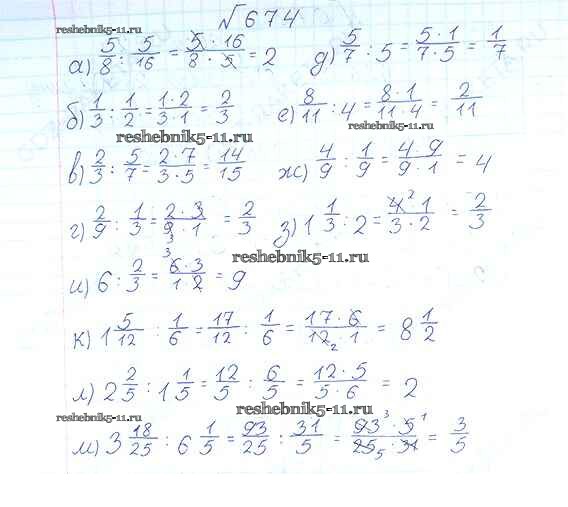 √674
reshebnik5-11.ru
а) 5/8 : 5/16 = 5·16/8·5 = 2 д) 5/7 : 5 = 5·1/7·5 = 1/7
б) 1/3 : 1/2 = 1·2/3·1 = 2/3 е) 8/11 : 4 = 8·1/11·4 = 2/11
reshebnik5-11.ru
в) 2/3 : 5/7 = 2·7/3·5 = 14/15 ж) 4/9 : 1/9 = 4·9/9·1 = 4
г) 2/9 : 1/3 = 2·3/9·1 = 2/3 з) 1 1/3 : 2 = 4·1/3·2 = 2/3
reshebnik5-11.ru
и) 6 : 2/3 = 6·3/1·2 = 9
к) 1 5/12 : 1/6 = 17/12 : 1/6 = 17·6/12·1 = 8 1/2
л) 2 2/5 : 1 1/5 = 12/5 : 6/5 = 12·5/5·6 = 2
reshebnik5-11.ru
reshebnik5-11.ru
м) 3 18/25 : 6 1/5 = 93/25 : 31/5 = 93·5/25·31 = 3/5